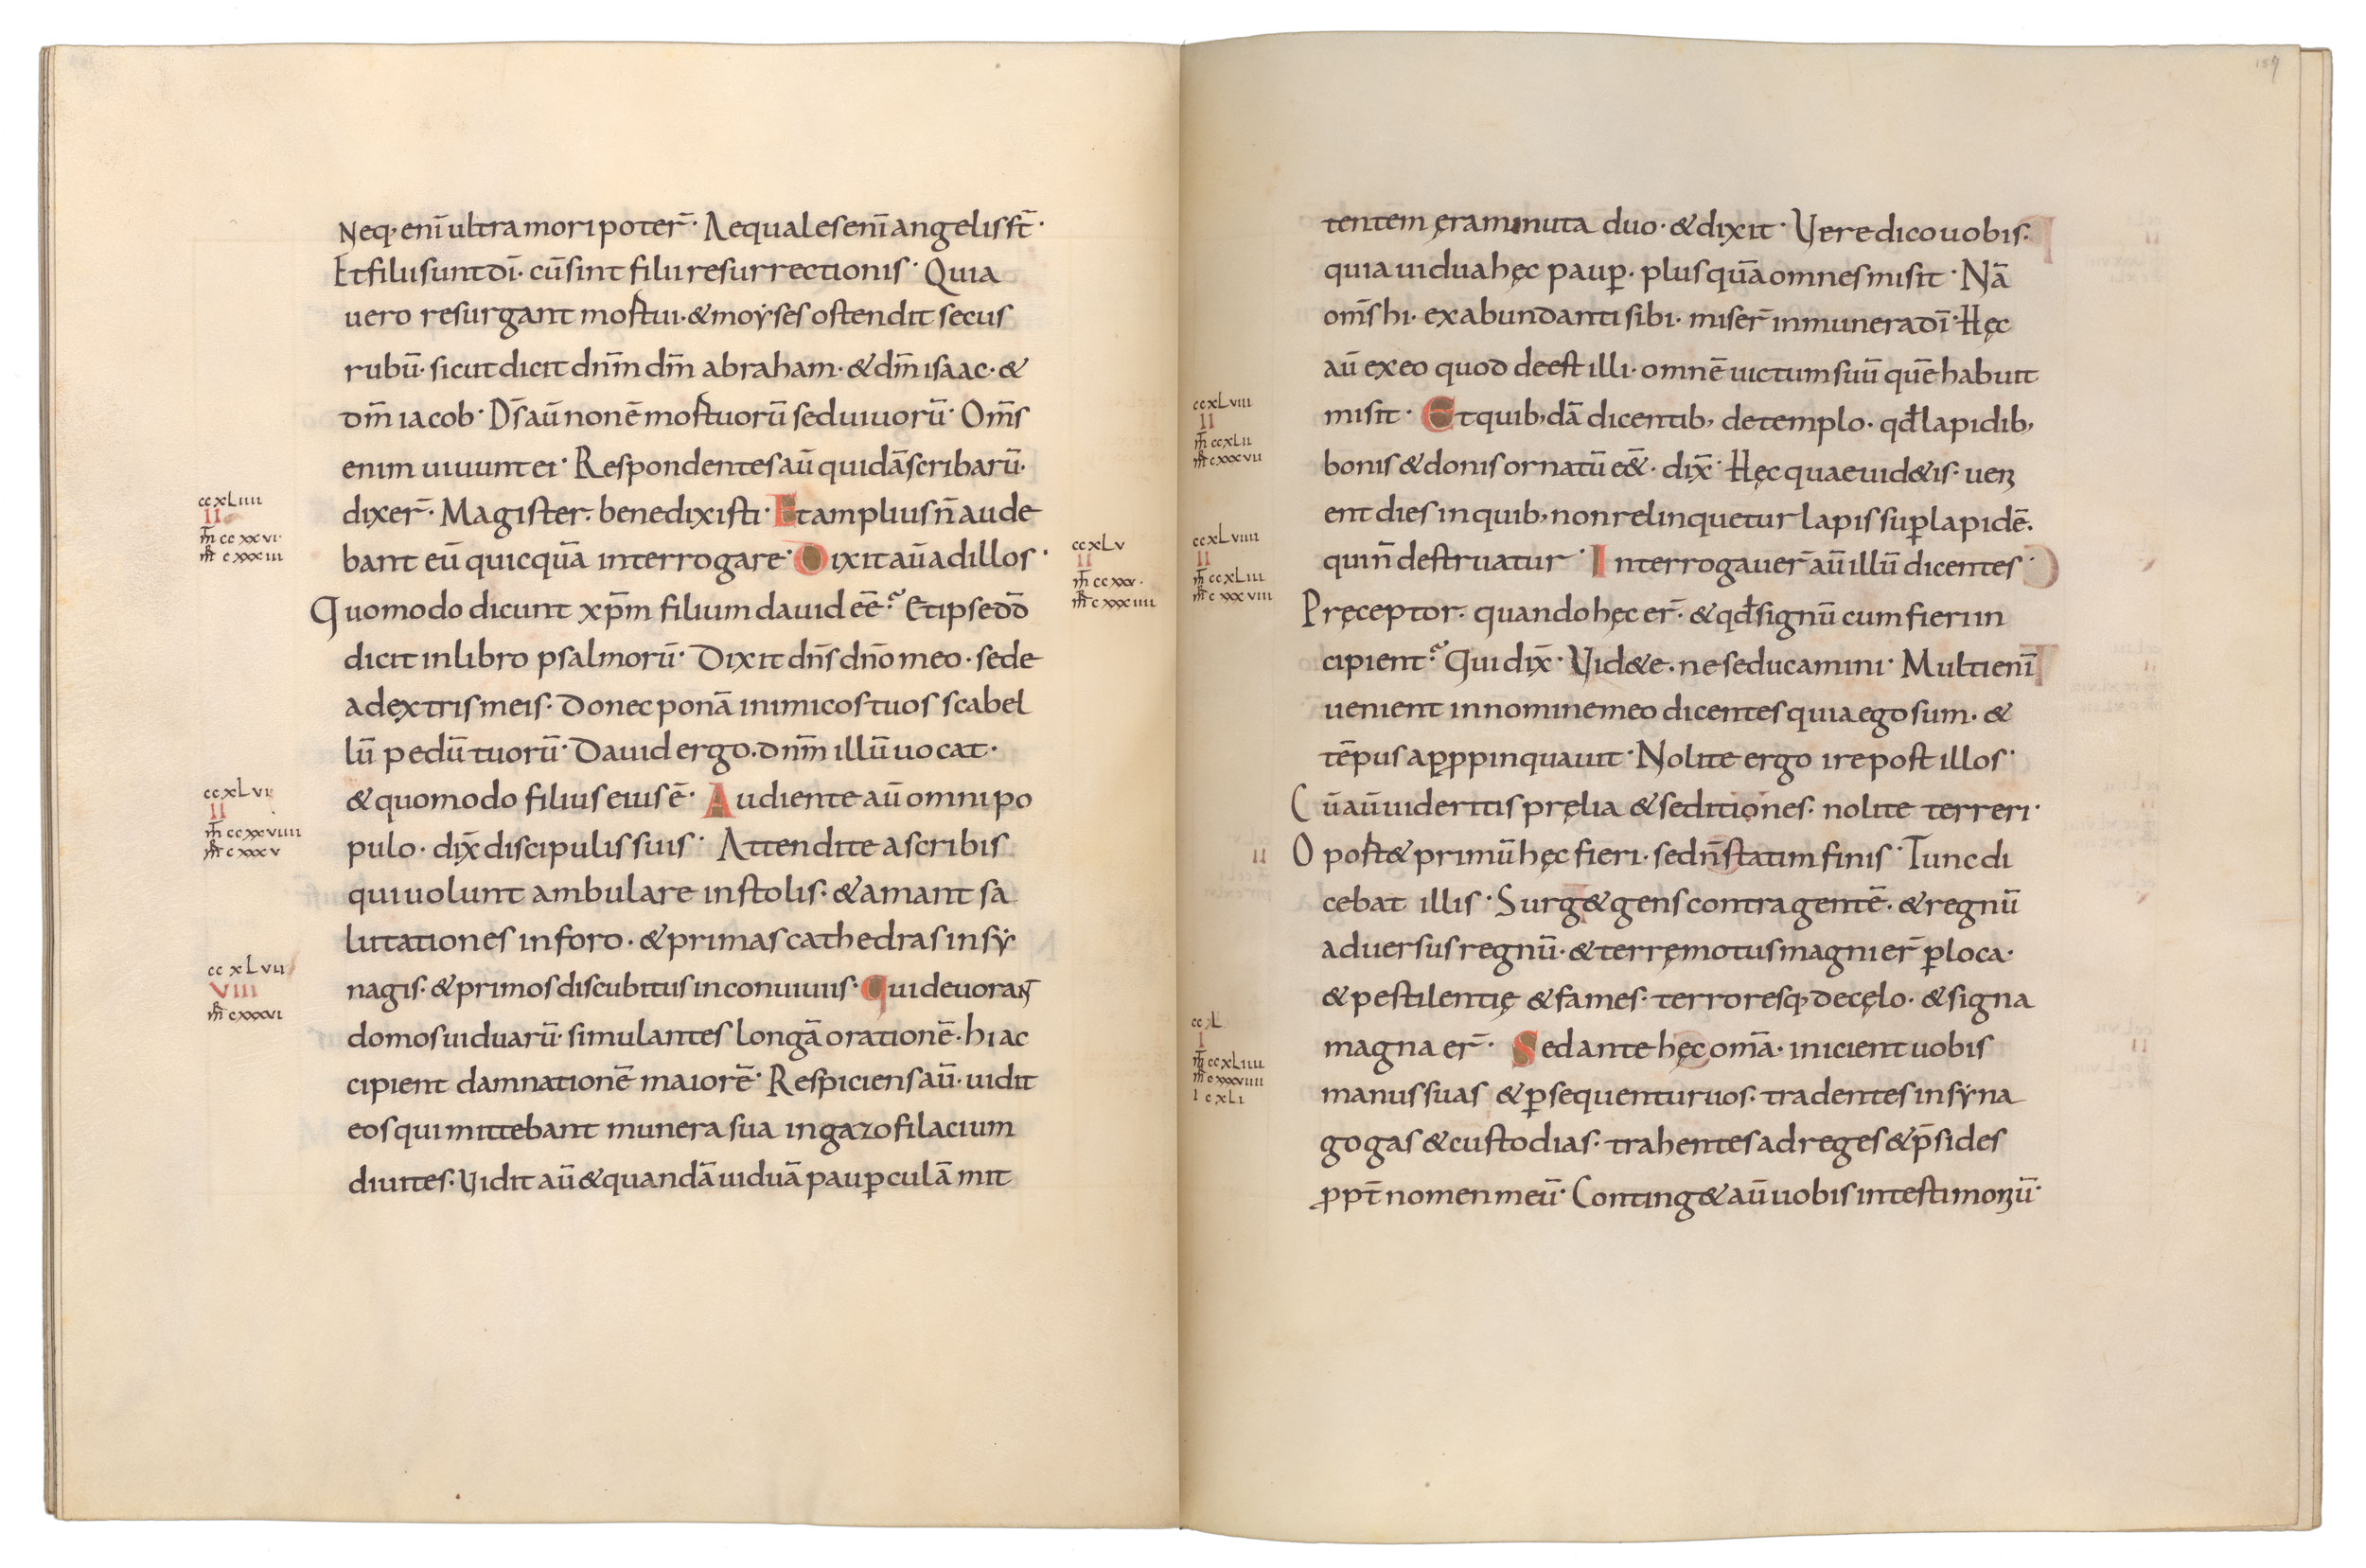 Neq; enī ultra mori poter̄· Aequales enī angelis st̄·
Et filii sunt dī· cū sint filii resurrectionis· Quia
uero resurgant mortui· & moẏses ostendit secus
rubū· sicut dicit dn̄m dm̄ abraham· & dm̄ isaac· &
dm̄ iacob· Ds̄ aū non ē mortuorū sed uiuorū· Om̄s
enim uiuunt ei· Respondentes aū quidā scribarū·
dixer̄· Magister· benedixisti· Et amplius n̄ aude
bant eū quicquā interrogare· Dixit aū ad illos·
Quomodo dicunt xp̄m filium dauid eē? Et ipse dd̄
dicit in libro psalmorū· Dixit dn̄s dn̄o meo· sede
a dextris meis· Donec ponā inimicos tuos scabel
lū pedū tuorū· Dauid ergo· dn̄m illū uocat·
& quomodo filius eius ē· Audiente aū omni po
pulo· dix̄ discipulis suis· Attendite a scribis
qui uolunt ambulare in stolis· & amant sa
lutationes in foro· & primas cathedras in sẏ
nagis· & primos discubitus in conuiuiis· Qui deuorant
domos uiduarū· simulantes longā orationē· hi ac
cipient damnationē maiorē· Respiciens aū· uidit
eos qui mittebant munera sua in gazofilacium
diuites· Uidit aū & quandā uiduā paup̱culā mit
ccxliiii
II
m̄ ccxxvi·
mr̄ cxxxiii
ccxlvi
II
m̄ ccxxviiii
mr̄ cxxxv
ccxlvii
VIII
mr̄ cxxxvi
ccxlv
II
m̄ ccxxv·
mr̄ cxxxiiii
tentem ęra minuta duo· & dixit· Uere dico uobis·
quia uidua hęc paup̱· plus quā omnes misit· Nā
om̄s hi· ex abundanti sibi· miser̄ in munera dī· Hęc
aū ex eo quod deest illi· omnē uictum suū quē habuit
misit· Et quib; dā dicentib; de templo· qđ lapidib;
bonis & donis ornatū eē&· dix̄· Hęc quae uid&is· ueni
ent dies in quib; non relinquetur lapis sup̱ lapidē·
qui n̄ destruatur· Interrogauer̄ aū illū dicentes·
Pręceptor· quando hęc er̄· & qđ signū cum fieri in
cipient? Qui dix̄· Uid&e· ne seducamini· Multi enī
uenient in nomine meo dicentes quia ego sum· &
tēpus app̱pinquauit· Nolite ergo ire post illos·
Cū aū uideritis pręlia & seditiones· nolite terreri·
Oport& primū hęc fieri· sed n̄ statim finis· Tunc di
cebat illis· Surg& gens contra gentē· & regnū
aduersus regnū· & terręmotus magni er̄ p̱ loca·
& pestilentię & fames· terroresq; de cęlo· & signa
magna er̄· Sed ante hęc om̄a· inicient uobis
manus suas & p̱sequentur uos· tradentes in sẏna
gogas & custodias· trahentes ad reges & p̄sides
p̱pt̄ nomen meū· Conting& aū uobis in testimoniū·
ccxlviii
II
m̄ ccxlii
mr̄ cxxxvii
ccxlviiii
II
m̄ ccxliii
mr̄ cxxxviii
II
ccl
I
m̄ ccxliiii
mr̄ cxxxviiii
i cxli
157